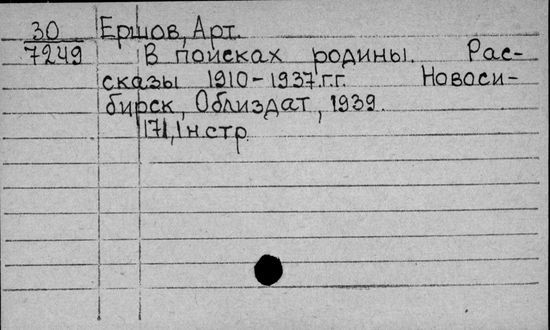 30 Ершов, Арт.
7249 В поисках родины. Рас-
сказы 1910-1937.г.г. Новоси-
бирск, Облиздат, 1939.
171, 1 н. стр.